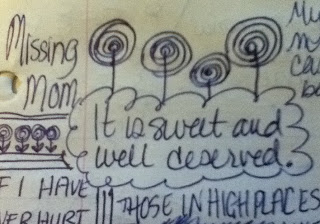 Missing
Mom
It is sweet and
well deserved.
IF I HAVE
EVER HURT
THOSE IN HIGH PLACES